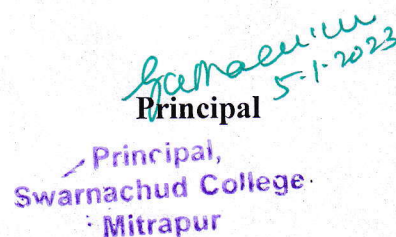 5-1-2023
Principal
Principal,
Swarnachud College.
Mitrapur